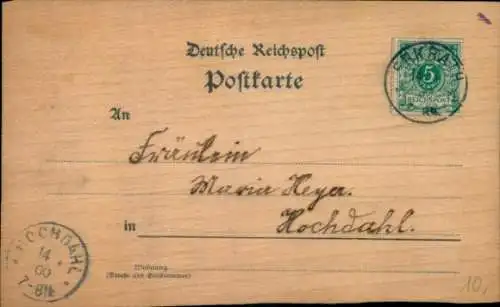 Deutsche Reichspost
Postkarte
ERKRATH
5
REICHSPOST
An
Fräulein
Maria Heyer.
in Hochdahl.
HOCHDAHL
14
00
7-8N
Wohnung
(Straße und Hausnummer)
10,